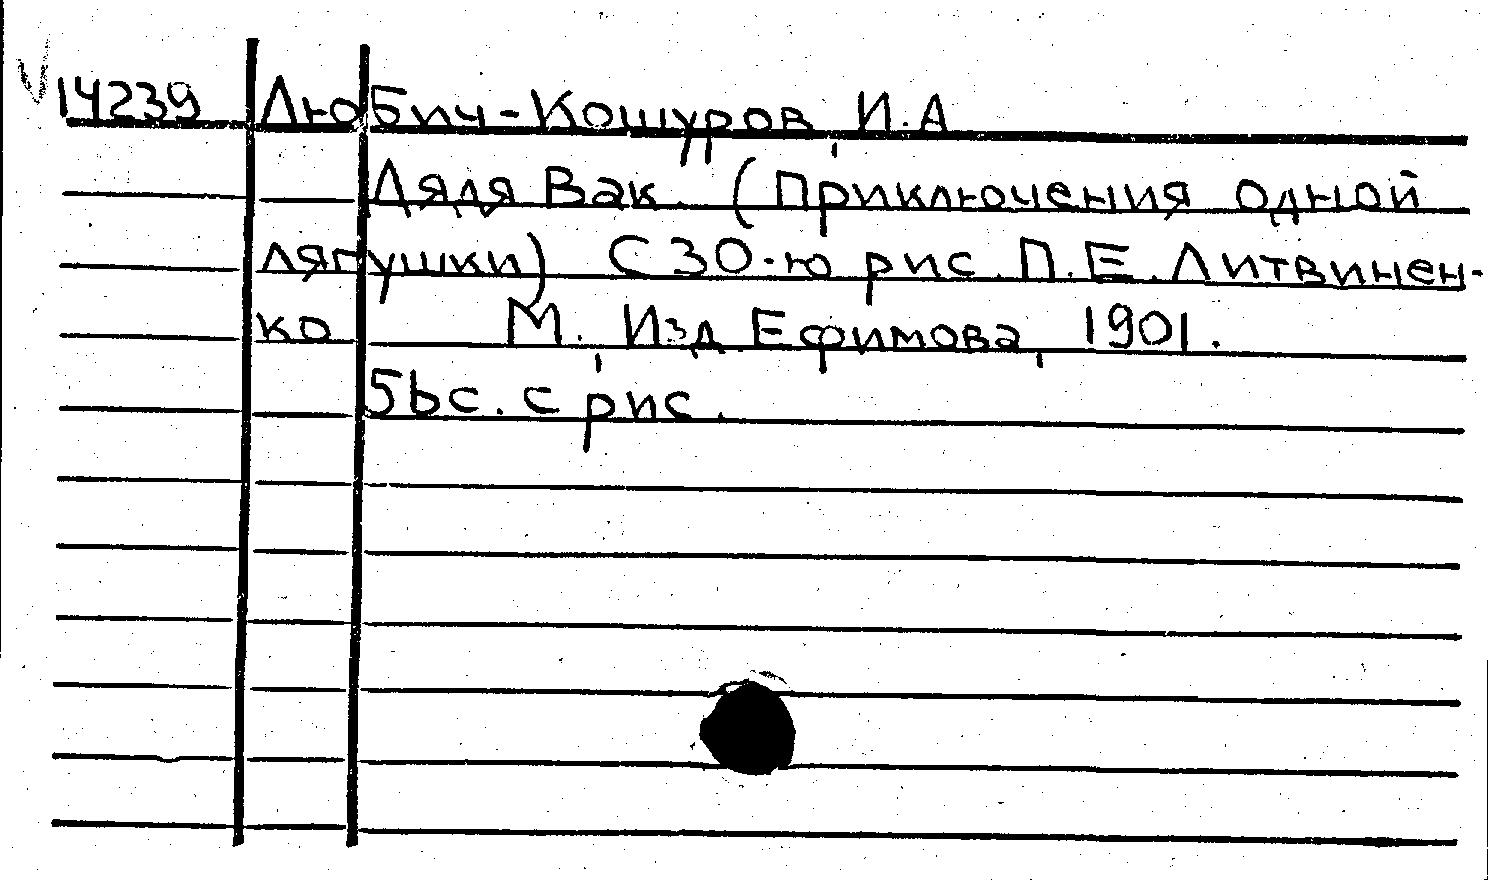 14239 Любич-Кошуров, И.А
Дядя Вак. (Приключения одной
лягушки) С 30-ю рис. П.Е. Литвинен-
ко М., Изд Ефимова, 1901.
56с. с рис.